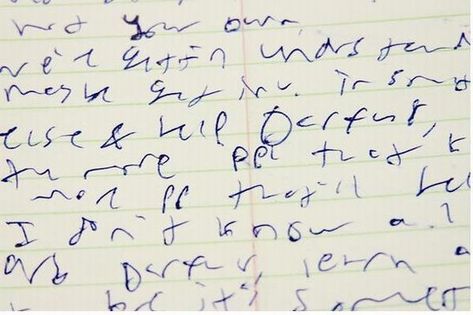 not your own
get in understand
maybe get inv. in som
else & help Darfur,
the more ppl that k
more pp that'll hel
I don't know a
Darfur, learn a
it's